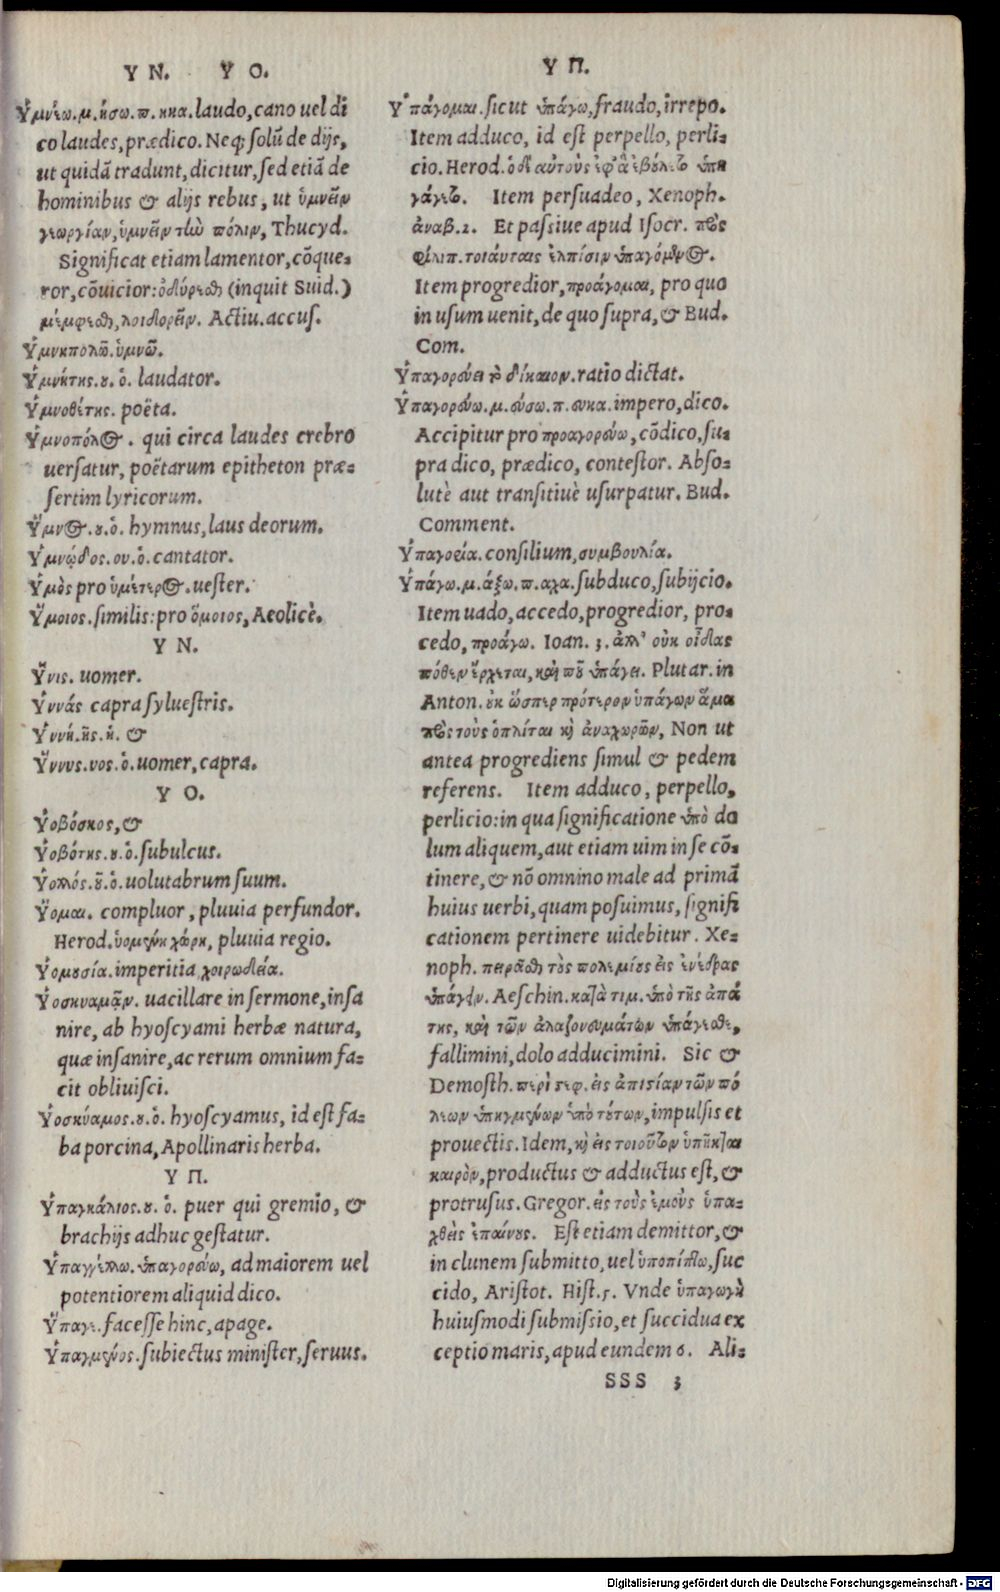 Υ Ν. Υ Ο.
Ὑμνέω.μ.ήσω.π.ηκα.laudo,cano uel di
co laudes,prædico. Neq; solũ de dijs,
ut quidã tradunt,dicitur,sed etiã de
hominibus & alijs rebus, ut ὑμνεῖν
γεωργίαν,ὑμνεῖν τὴν πόλιν, Thucyd.
Significat etiam lamentor,cõque-
ror,cõuicior:ὀδύρεσθαι (inquit Suid.)
μέμφεσθαι,λοιδορεῖν. Actiu.accus.
Ὑμνηπολῶ.ὑμνῶ.
Ὑμνήτης.ου.ὁ. laudator.
Ὑμνοθέτης. poëta.
Ὑμνοπόλος. qui circa laudes crebro
uersatur, poëtarum epitheton præ-
sertim lyricorum.
Ὕμνος.ου.ὁ. hymnus,laus deorum.
Ὑμνῳδος.ου.ὁ.cantator.
Ὑμὸς pro ὑμέτερος.uester.
Ὕμοιος.similis:pro ὅμοιος, Aeolicè.
Υ Ν.
Ὕνις. uomer.
Ὑννάς capra syluestris.
Ὑννή.ῆς.ἡ. &
Ὕννυς.υος.ὁ.uomer,capra.
Υ Ο.
Ὑοβόσκος,&
Ὑοβότης.ου.ὁ.subulcus.
Ὑολλός.οῦ.ὁ.uolutabrum suum.
Ὕομαι. compluor, pluuia perfundor.
Herod.ὑομένη χώρη, pluuia regio.
Ὑομουσία.imperitia χοιρωδεία.
Ὑοσκυαμᾷν. uacillare in sermone,insa
nire, ab hyoscyami herbæ natura,
quæ insanire,ac rerum omnium fa-
cit obliuisci.
Ὑοσκύαμος.ου.ὁ. hyoscyamus, id est fa-
ba porcina, Apollinaris herba.
Υ Π.
Ὑπαγκάλιος.ου. ὁ. puer qui gremio, &
brachijs adhuc gestatur.
Ὑπαγγέλλω.ὑπαγορεύω, ad maiorem uel
potentiorem aliquid dico.
Ὕπαγε.facesse hinc,apage.
Ὑπαγμένος.subiectus minister,seruus.
Υ Π.
Ὑπάγομαι.sicut ὑπάγω,fraudo,irrepo.
Item adduco, id est perpello, perli-
cio. Herod.ὁ δὲ αὐτοὺς ἐφ' ἃ ἐβούλετο ὑπη
γάγετο. Item persuadeo, Xenoph.
ἀναβ.2. Et passiue apud Isocr. πρὸς
φίλιπ.τοιάυταις ἐλπίσιν ὑπαγόμενος.
Item progredior,προάγομαι, pro quo
in usum uenit,de quo supra,& Bud.
Com.
Ὑπαγορεύει τὸ δίκαιον.ratio dictat.
Ὑπαγορεύω.μ.εύσω.π.ευκα.impero,dico.
Accipitur pro προαγορεύω,cõdico,su-
pra dico, prædico, contestor. Abso-
lutè aut transitiuè usurpatur. Bud.
Comment.
Ὑπαγορεία.consilium,συμβουλία.
Ὑπάγω.μ.άξω.π.αχα.subduco,subijcio.
Item uado,accedo,progredior, pro-
cedo, προάγω. Ioan. 3.ἀλλ' οὐκ οἶδας
πόθεν ἔρχεται, καὶ ποῦ ὑπάγει. Plutar.in
Anton.οὐκ ὥσπερ πρότερον ὑπάγων ἅμα
πρὸς τοὺς ὁπλίται καὶ ἀναχωρῶν, Non ut
antea progrediens simul & pedem
referens. Item adduco, perpello,
perlicio:in qua significatione ὑπὸ do
lum aliquem,aut etiam uim in se cõ-
tinere,& nõ omnino male ad primã
huius uerbi,quam posuimus, signifi
cationem pertinere uidebitur. Xe-
noph. πειρᾶσθαι τοὺς πολεμίους εἰς ἐνέδρας
ὑπάγειν. Aeschin.κατὰ τιμ.ὑπὸ τῆς ἀπά
της, καὶ τῶν ἀλαζονευμάτων ὑπάγεσθε,
fallimini,dolo adducimini. Sic &
Demosth.περὶ στεφ.εἰς ἀπιστίαν τῶν πό
λεων ὑπηγμένων ὑπὸ τούτων,impulsis et
prouectis.Idem,καὶ εἰς τοιοῦτον ὑπῆκται
καιρὸν,productus & adductus est,&
protrusus. Gregor.εἰς τοὺς ἐμοὺς ὑπα-
χθεὶς ἐπαίνους. Est etiam demittor,&
in clunem submitto,uel ὑποπίπτω,suc
cido, Aristot. Hist.5. Vnde ὑπαγωγὴ
huiusmodi submissio,et succidua ex
ceptio maris,apud eundem 6. Ali-
SSS 3
Digitalisierung gefördert durch die Deutsche Forschungsgemeinschaft - DFG